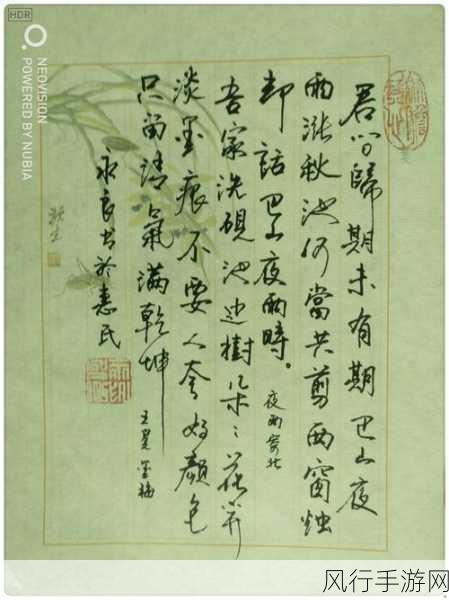 HDR
NEOVISION
POWERED BY NUBIA
君问歸期未有期巴山夜
雨漲秋池何當共剪西窗燭
却話巴山夜雨時。
夜雨寄北
吾家洗硯池边樹朵々花開
淡墨痕不要人夸好顏色
只留清氣滿乾坤
王冕墨梅
永良书於惠民
风行手游网